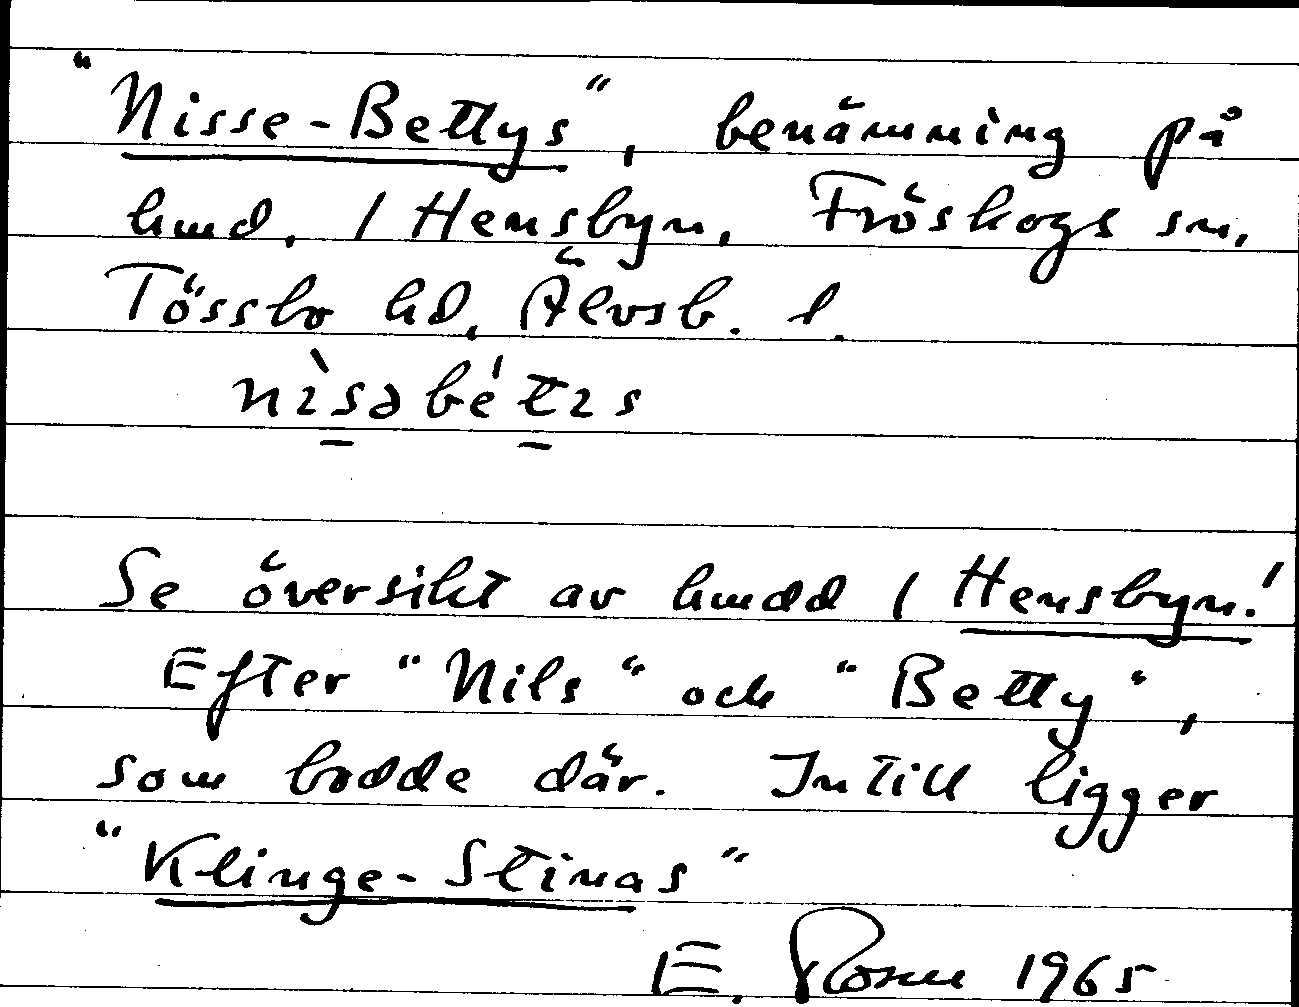 "Nisse-Bettys", benämning på
hmd, 1 Hensbyn, Fröskogs sn,
Tössbo hd, Älvsb. l.
nìsəbétɪs
Se översikt av hmdd 1 Hensbyn!
Efter "Nils" och "Betty",
som bodde där. Intill ligger
"Klinge-Stinas"
E. Rosell 1965